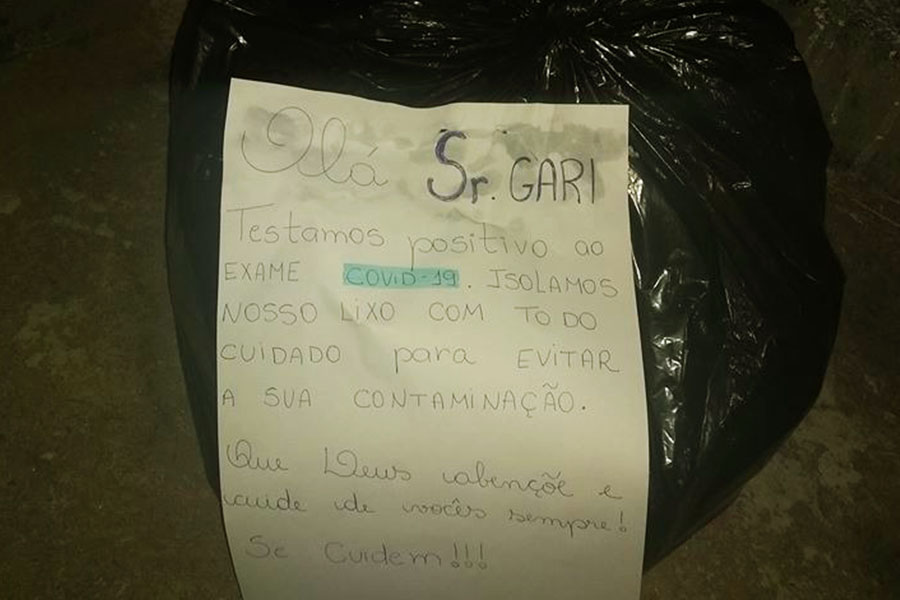 Olá Sr. GARI
Testamos positivo ao
EXAME COVID-19. ISOLAMOS
NOSSO LIXO COM TODO
CUIDADO para EVITAR
A SUA CONTAMINAÇÃO.
Que Deus abençõe e
cuide de vocês sempre!
Se Cuidem!!!